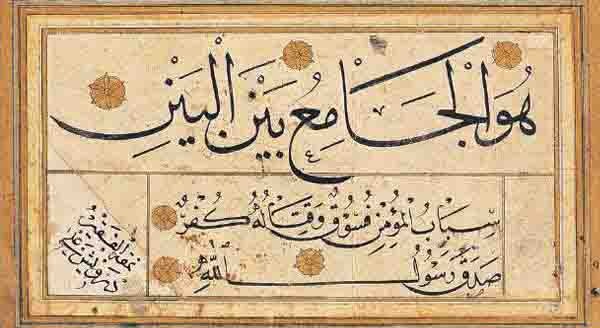 هُوَ الْجَامِعُ بَيْنَ الْبَيْنِ
سِبَابُ الْمُؤْمِنِ فُسُوقٌ وَقِتَالُهُ كُفْرٌ
صَدَقَ رَسُولُ اللّٰهِ
نمقه الفقير